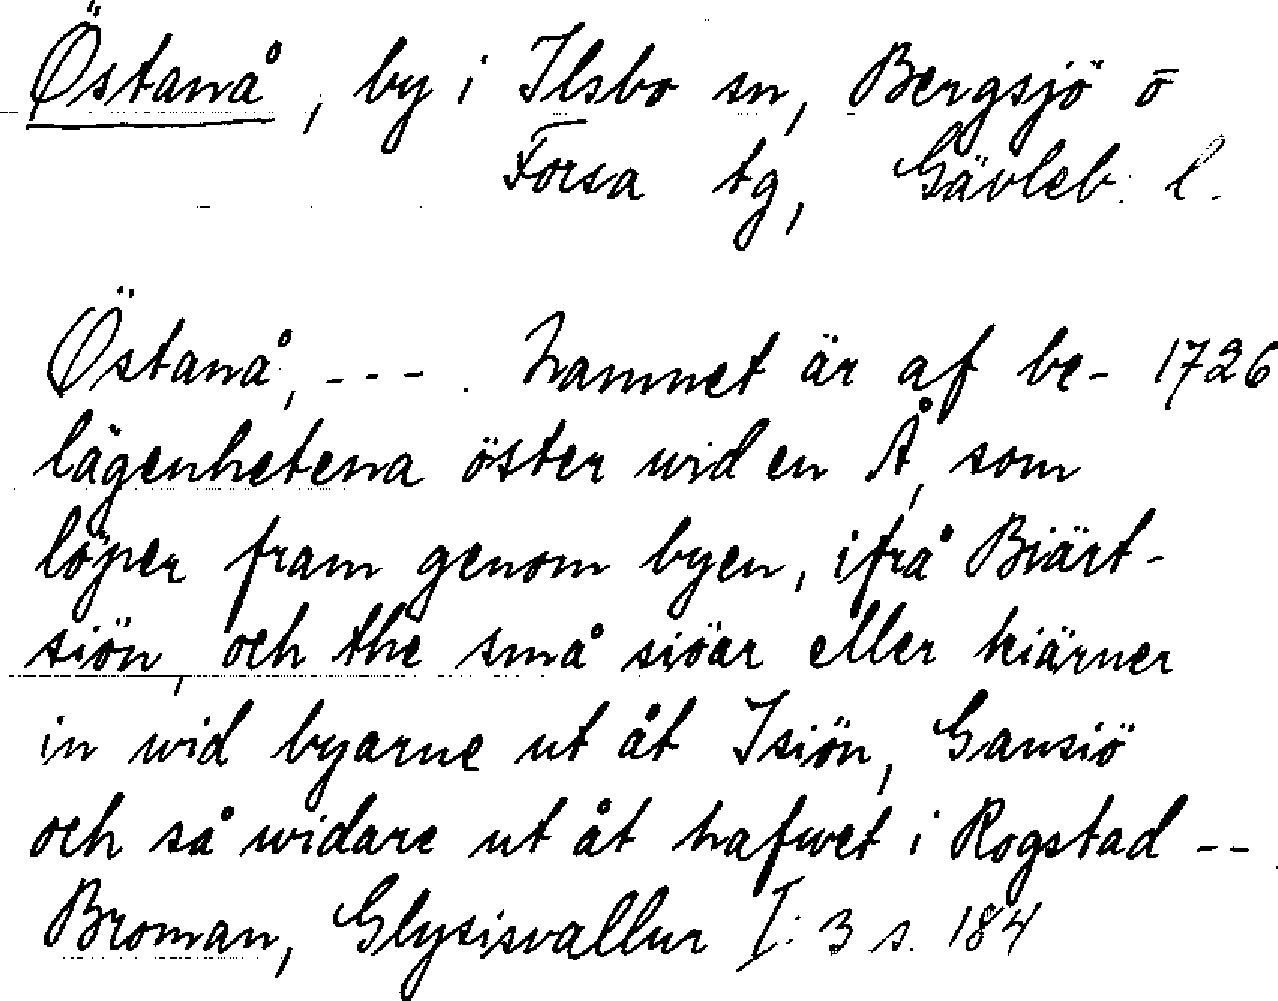 Östanå, by i Ilsbo sn, Bergsjö o
Forsa tg, Gävleb. l.
Östanå, --- . Namnet är af be- 1726
lägenhetena öster wid en Å, som
löper fram genom byen, ifrå Biärt-
siön, och the små siöar eller kiärner
in wid byarne ut åt Isiön, Gansiö
och så widare ut åt hafwet i Rogstad --
Broman, Glysisvallur I: 3 s. 184